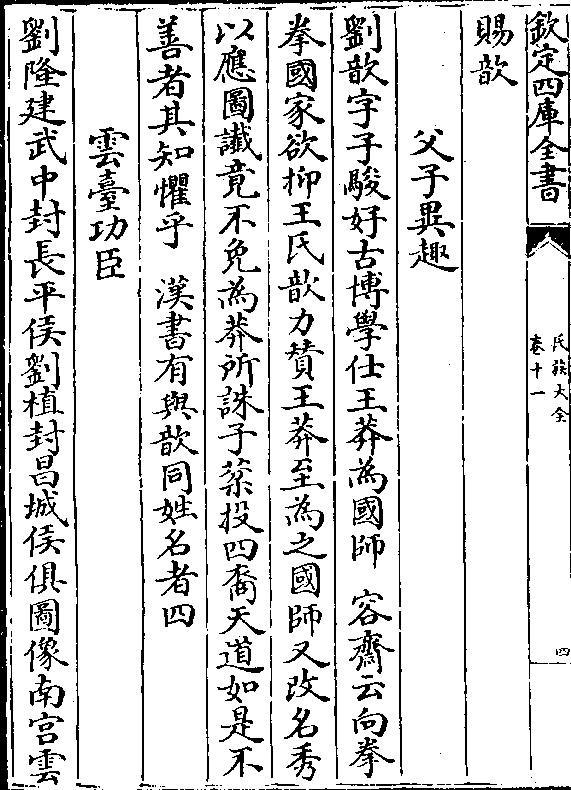 欽定四庫全書
氏族大全
卷十一
四
賜歆
父子異趣
劉歆字子駿好古博學仕王莽為國師 容齋云向拳
拳國家欲抑王氏歆力贊王莽至為之國師又改名秀
以應圖讖竟不免為莽所誅子棻投四裔天道如是不
善者其知懼乎 漢書有與歆同姓名者四
雲臺功臣
劉隆建武中封長平侯劉植封昌城侯俱圖像南宮雲